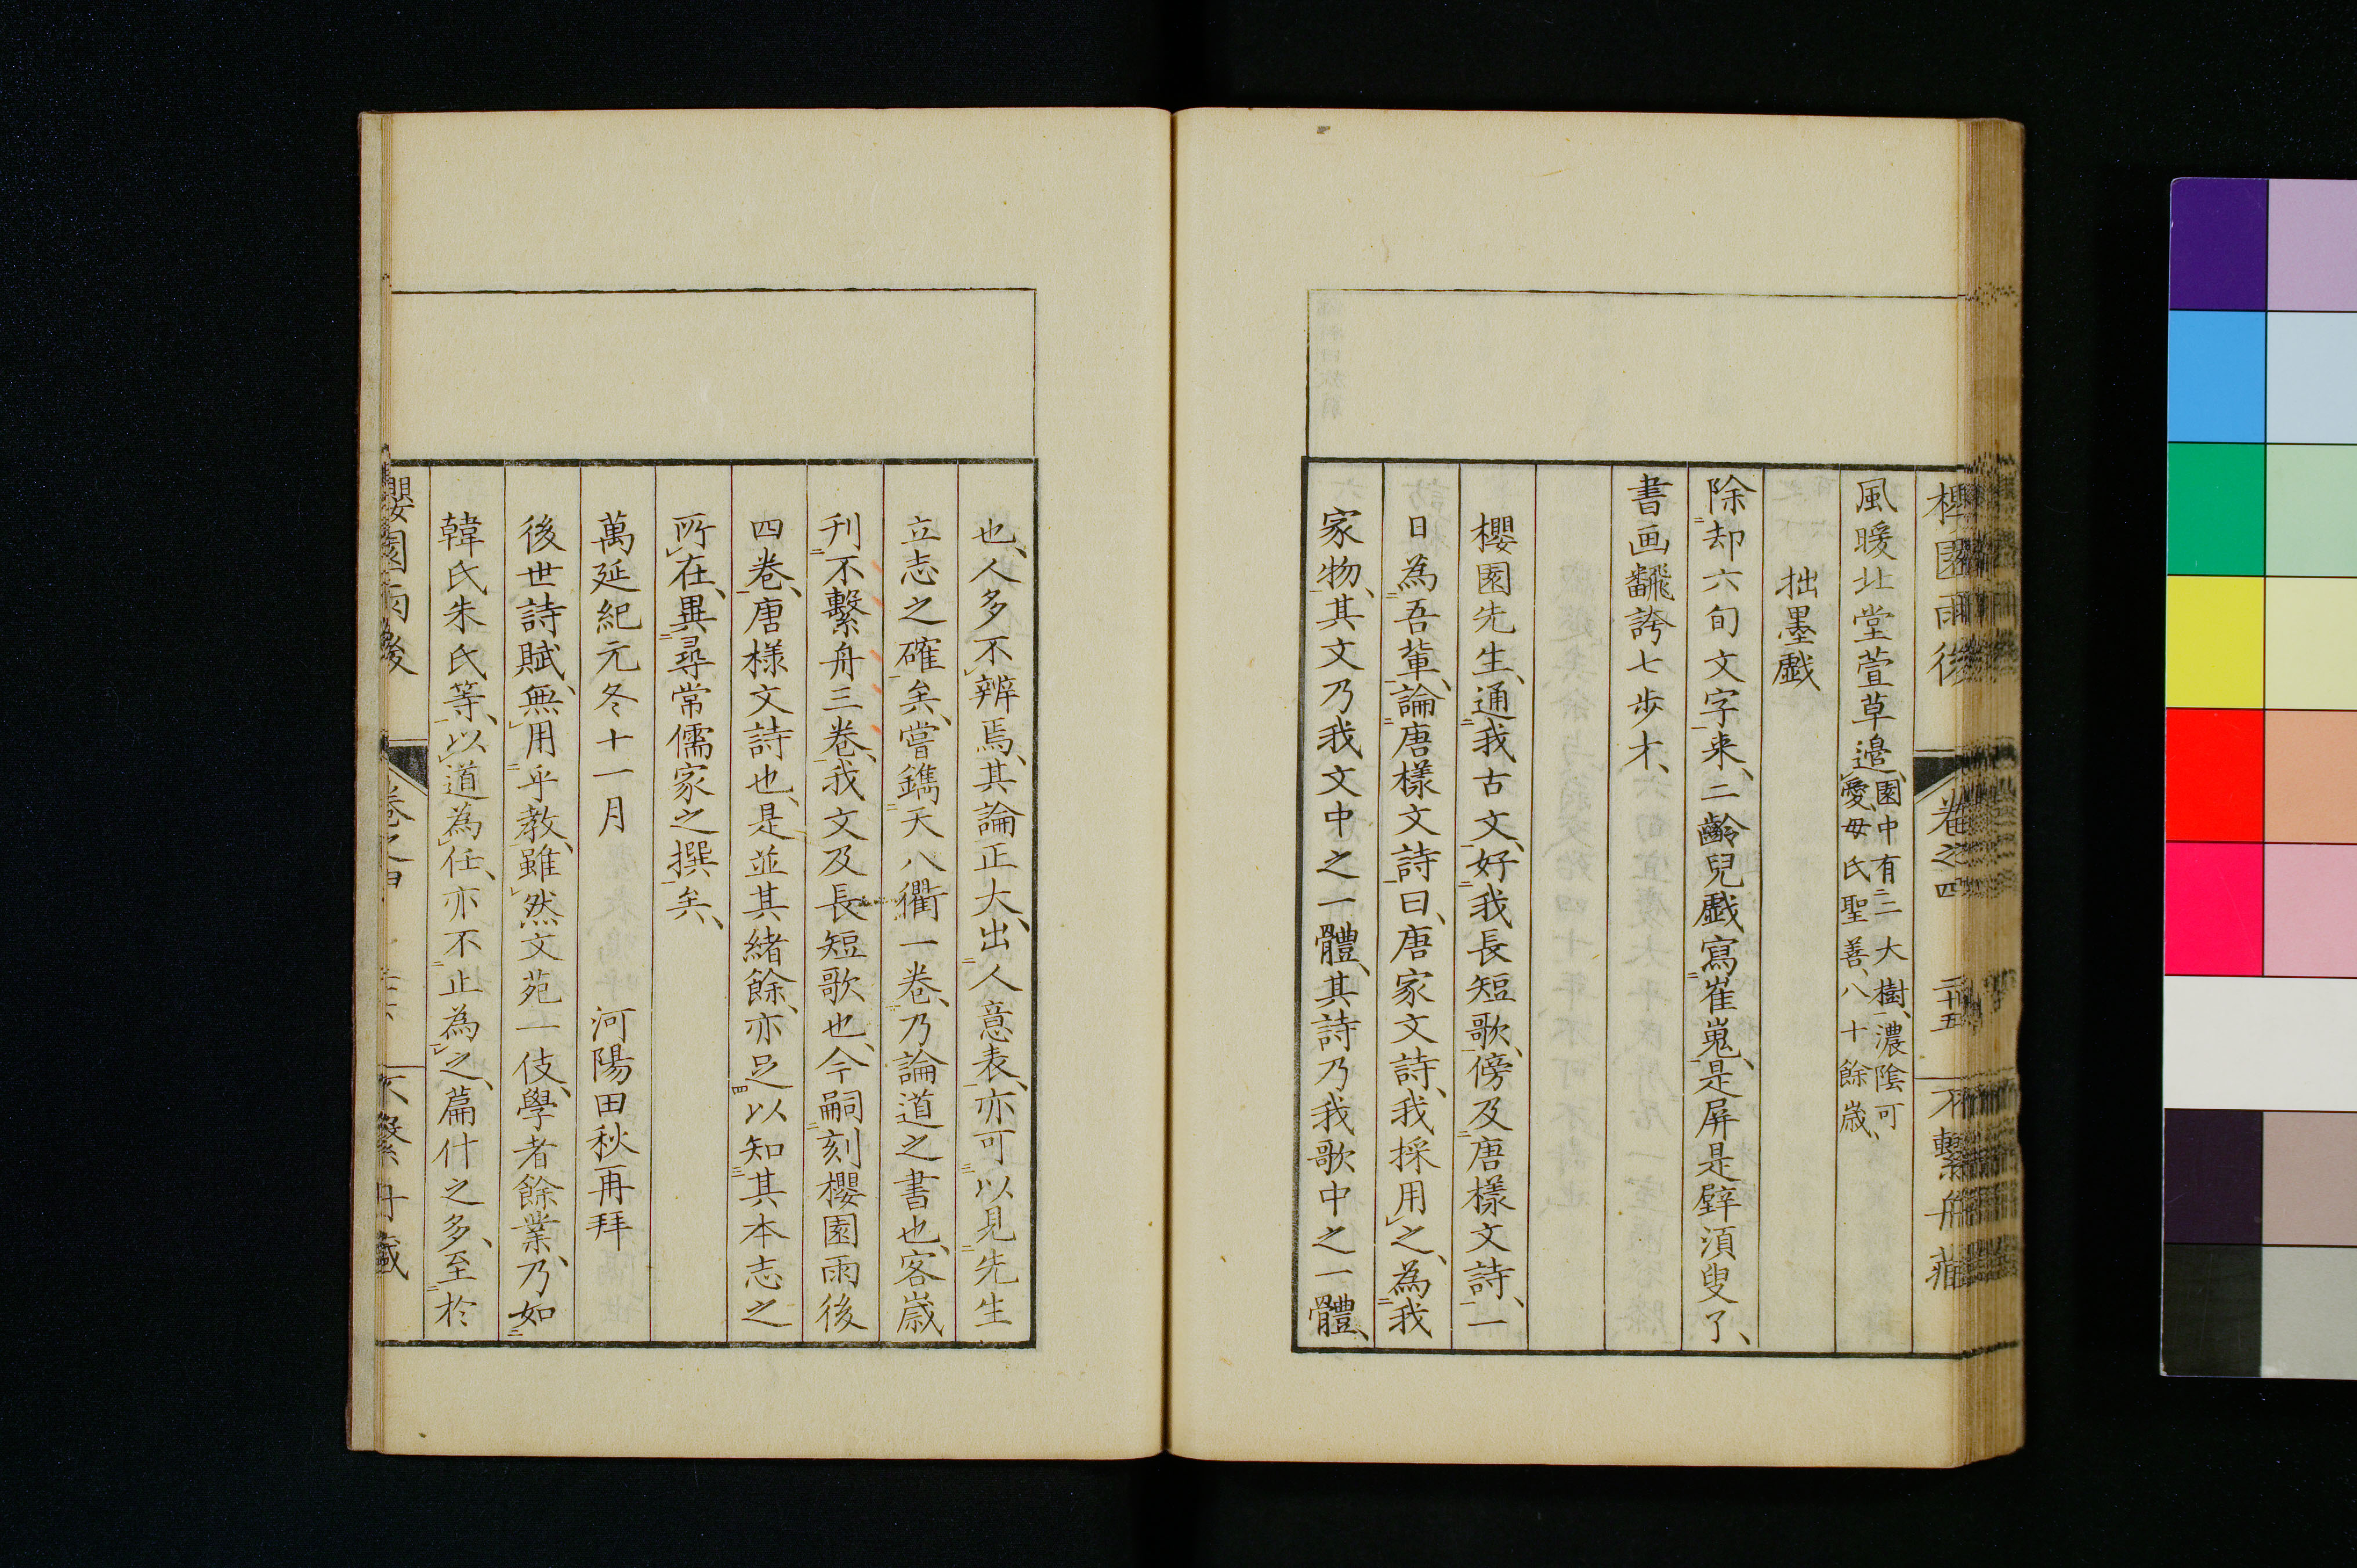 風暖北堂萱草邉、園中有二三大樹、濃陰可、
愛、毋氏聖善、八十餘歳、
拙墨戯
除却六旬文字来、二齢兒戯寫崔嵬、是屏是壁須叟了、
書画飜誇七歩才、
櫻園先生、通我古文、好我長短歌、傍及唐樣文詩、一
日為吾輩、論唐樣文詩曰、唐家文詩、我採用之、為我
家物、其文乃我文中之一體、其詩乃我歌中之一體、
也、人多不辨焉、其論正大、出人意表、亦可以見先生
立志之確矣、嘗鐫天八衢一卷、乃論道之書也、客嵗
刊不繫舟三卷、我文及長短歌也、今嗣刻櫻園雨後
四卷、唐様文詩也、是並其緒餘、亦足以知其本志之
所在、異尋常儒家之撰矣、
萬延紀元冬十一月　河陽田秋再拜
後世詩賦、無用乎教、雖然文苑一伎、學者餘業、乃如
韓氏朱氏等、以道為任、亦不止為之、篇什之多、至於
櫻園雨後　卷之四　不繫舟藏